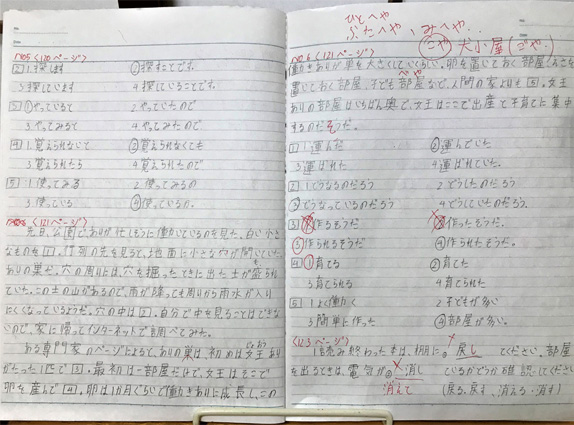 no5 〈120ページ〉
2 1. 探します ②探すことです。
3 探しています 4 探していることです。
3 ①やっていると 2 やっていたので
3 やってみると 4 やってみたので
4 1. 覚えられないで ②覚えられなくても
3 覚えられたら 4 覚えられたので
5 1 使ってみる 2 使ってみるの
3 使っている ④使っているか。
〈121ページ〉
先日、公園でありが忙しそうに働いているのを見た。白い小さ
なものを1、行列の先を見ると、地面に小さなやが開いていた
ありの巣だ。穴の周りには、穴を掘ったときに出た土が盛られ
ていた。この土の山があるので、雨が降っても周りから雨水が入り
にくくなっているようだ。穴の中は2、自分で中を見ることはできな
いので、家に帰ってインターネットで調べてみた。
ある専門家のページによると、ありの巣は、初めは女王あり
がたった1匹で3、最初は一部屋だけで、女王はそこで
卵を産んで4、卵は1か月ぐらいで働きありに成長し、この
ひとへや
ふたへや、みへや…
こや 犬小屋(ごや)
no.6 〈121ページ〉
働きありが巣を大きくしていくらしい。卵を置いておく部屋、
置いておく部屋、子ども部屋など、人間の家よりも5。女王
へや
ありの部屋はいちばん奥で、女王はここで出産と子育てに集中
するのだそうだ。
1 1 運んだ ②運んでいた
3 運ばれた 4 運ばれていた。
2 1. どうなるのだろう 2 どうしたのだろう
③どうなっているのだろう 4 どうしていたのだろう。
3 作るそうだ ②作ったそうだ。
③作られるそうだ ④作られたそうだ。
4 ①育てる ②育てた
3 育てられる 4 育てられた
5 1 よく働く 2 子どもが多い
3 簡単に作った ④部屋が多い。
〈123ページ〉
読み終わった本は、棚に 戻し てください。部屋
を出るときは、電気が 消し ているかどうか確認してください
消えて (戻る、戻す、消える・消す)